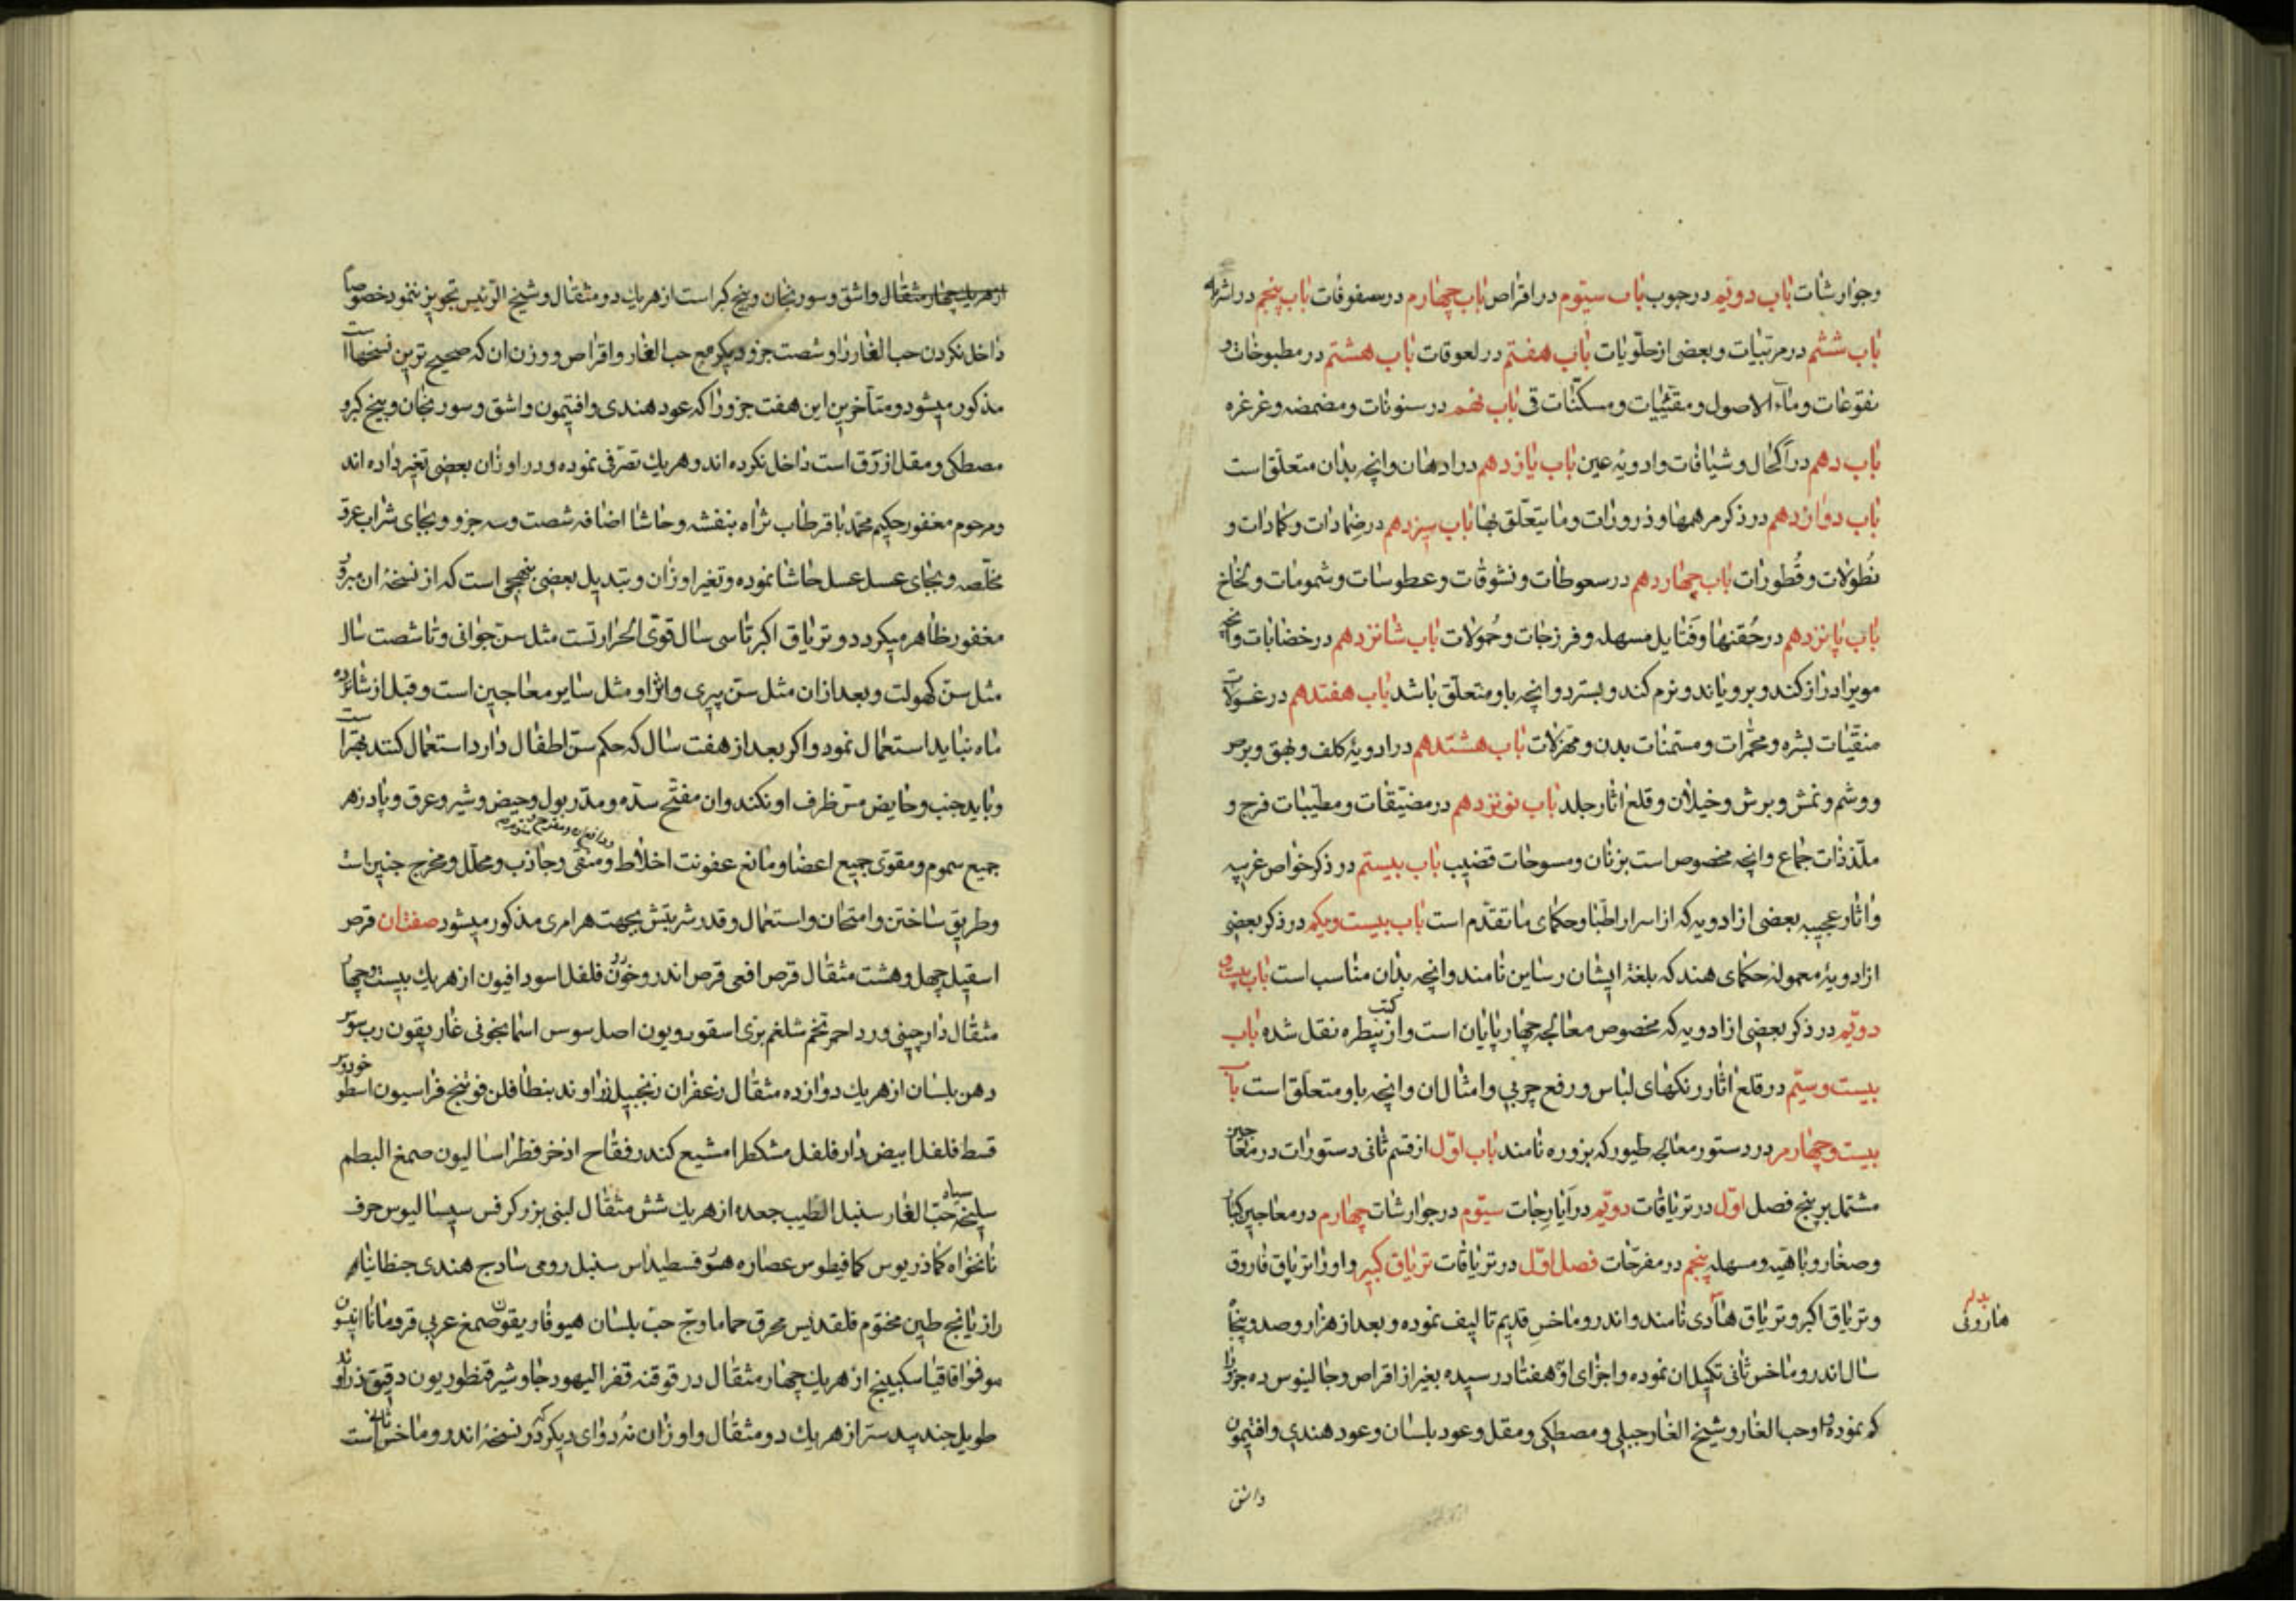 وجوارشات باب دویم در حبوب باب سیّوم در اقراص باب چهارم در سفوفات باب پنجم در اشربه
باب ششم در مربّیات و بعضی از حلویات باب هفتم در لعوقات باب هشتم در مطبوخات و
نقوعات و ماء الاصول و مقیّئات و مسکّنات قی باب نهم در سنونات و مضمضه و غرغره
باب دهم در اکحال و شیافات و ادویهٔ عین باب یازدهم در ادهان و انچه بدان متعلّق است
باب دوازدهم در ذکر مرهمها و ذرورات و ما یتعلّق بها باب سیزدهم در ضمادات و کمادات و
نُطولات و قُطورات باب چهاردهم در سعوطات و نشوقات و عطوسات و شمومات و لخالخ
باب پانزدهم در حُقنها و فَتایل مسهله و فرزجات و حُمولات باب شانزدهم در خضابات و انچه
مویرا دراز کند و برویاند و نرم کند و بسترد و انچه باو متعلّق باشد باب هفتدهم در غسولات
منقّیات بشره و محمّرات و مسمّنات بدن و مهزلات باب هشتدهم در ادویهٔ کلف و بهق و برص
و وشم و نمش و برش و خیلان و قلع اثار جلد باب نوزدهم در مضیّقات و مطیّبات فرج و
ملذّذات جماع و انچه مخصوص است بزنان و مسوحات قضیب باب بیستم در ذکر خواص غریبه
و اثار عجیبه بعضی از ادویه که از اسرار اطبّا و حکمای ما تقدّم است باب بیست و یکم در ذکر بعضی
از ادویهٔ معمولهٔ حکمای هند که بلغهٔ ایشان رساین نامند و انچه بدان مناسب است باب بیست و
دویّم در ذکر بعضی از ادویه که مخصوص معالجه چهارپایان است و از کتب بیطره نقل شده باب
بیست و سیّم در قلع اثار رنکهای لباس و رفع چربی و امثال ان و انچه باو متعلّق است باب
بیست و چهارم در دستور معالجه طیور که بزوره نامند باب اوّل از قسم ثانی دستورات در معاجین
مشتمل بر پنج فصل اوّل در تریاقات دویّم در ایارجات سیّوم در جوارشات چهارم در معاجین کبار
و صغار و باهیّه و مسهله پنجم در مفرّحات فصل اوّل در تریاقات تریاق کبیر و او را تریاق فاروق
و تریاق اکبر و تریاق هادی نامند و اندروماخس قدیم تالیف نموده و بعد از هزار و صد و پنجاه
هارونی
سال اندروماخس ثانی تکمیل ان نموده و اجزای او هفتاد رسیده بغیر از اقراص و جالینوس ده جزو را
کم نموده و او حب الغار و شیخ الغار جبلی و مصطکی و مقل و عود بلسان و عود هندی و افتیمون
واشق
از هریك چهار مثقال و اشق و سورنجان و بیخ کبر است از هریك دو مثقال و شیخ الرئیس تجویز ننمود خصوصا
داخل نکردن حب الغار را و شصت جزو دیکر مع حب الغار و اقراص و وزن ان که صحیح ترین نسخهاست
مذکور میشود و متأخرین این هفت جزو را که عود هندی و افتیمون و اشق و سورنجان و بیخ کبر و
مصطکی و مقل ازرق است داخل نکرده اند و هریك تصرّفی نموده و در اوزان بعضی تغیر داده اند
و مرحوم مغفور حکیم محمد باقر طاب ثراه بنفشه و حاشا اضافه شصت و سه جزو و بجای شراب عرق
مخلّصه و بجای عسل عسل حاشا نموده و تغیر اوزان و تبدیل بعضی بنهجی است که از نسخهٔ ان مبرور
مغفور ظاهر میکردد و تریاق اکبر تا سی سال قوی الحرارتست مثل سنّ جوانی و تا شصت سال
مثل سنّ کهولت و بعد ازان مثل سنّ پیری و اثر او مثل سایر معاجین است و قبل از شانزده
ماه نباید استعمال نمود و اکر بعد از هفت سال که حکم سنّ اطفال دارد استعمال کنند بهتر است
و باید جنب و حایض مسّ ظرف او نکند و ان مفتّح سدّه و مدّر بول و حیض و شیر و عرق و پادزهر
جمیع سموم و مقوّی جمیع اعضا و مانع عفونت اخلاط و منقّی و جاذب و محلّل و مخرج جنین است
و طریق ساختن و امتحان و استعمال و قدر شربتش بجهت هر امری مذکور میشود صفت ان قرص
اسقیل چهل و هشت مثقال قرص افعی قرص اندروخورن فلفل اسود افیون از هریك بیست و چهار
مثقال دارچینی ورد احمر تخم شلغم بری اسقوردیون اصل سوس اسمانجونی غاریقون رب سوس
دهن بلسان از هریك دوازده مثقال زعفران زنجبیل راوند بنطافلن فوتنج فراسیون اسطوخودوس
قسط فلفل ابیض دارفلفل مشکطرامشیع کندر فقاح اذخر فطراسالیون صمغ البطم
سلیخه سیاه حبّ الغار سنبل الطیب جعده از هریك شش مثقال لبنی بزر کرفس سیسالیوس حرف
نانخواه کماذریوس کمافیطوس عصاره هیوفسطیداس سنبل رومی سادج هندی جنطیانا
رازیانج طین مختوم قلقدیس محرق حماما وج حبّ بلسان هیوفاریقون صمغ عربی قردمانا انیسون
مو فو اقاقیا سکبینج از هریك چهار مثقال درقوقنه قفر الیهود جاوشیر قنطوریون دقیق زراوند
طویل جندبیدستر از هریك دو مثقال و اوزان نه دوای دیکر که در نسخهٔ اندروماخس ثانی است